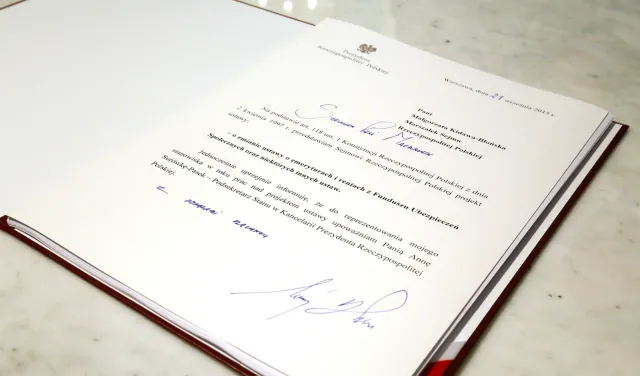 Prezydent
Rzeczypospolitej Polskiej
Warszawa, dnia 21 września 2015 r.
Pani
Małgorzata Kidawa-Błońska
Marszałek Sejmu
Rzeczypospolitej Polskiej
Szanowna Pani Marszałek
Na podstawie art. 118 ust. 1 Konstytucji Rzeczypospolitej Polskiej z dnia
2 kwietnia 1997 r. przedstawiam Sejmowi Rzeczypospolitej Polskiej projekt
ustawy:
– o zmianie ustawy o emeryturach i rentach z Funduszu Ubezpieczeń
Społecznych oraz niektórych innych ustaw.
Jednocześnie uprzejmie informuję, że do reprezentowania mojego
stanowiska w toku prac nad projektem ustawy upoważniam Panią Annę
Surówkę-Pasek - Podsekretarz Stanu w Kancelarii Prezydenta Rzeczypospolitej
Polskiej.
Z wyrazami szacunku